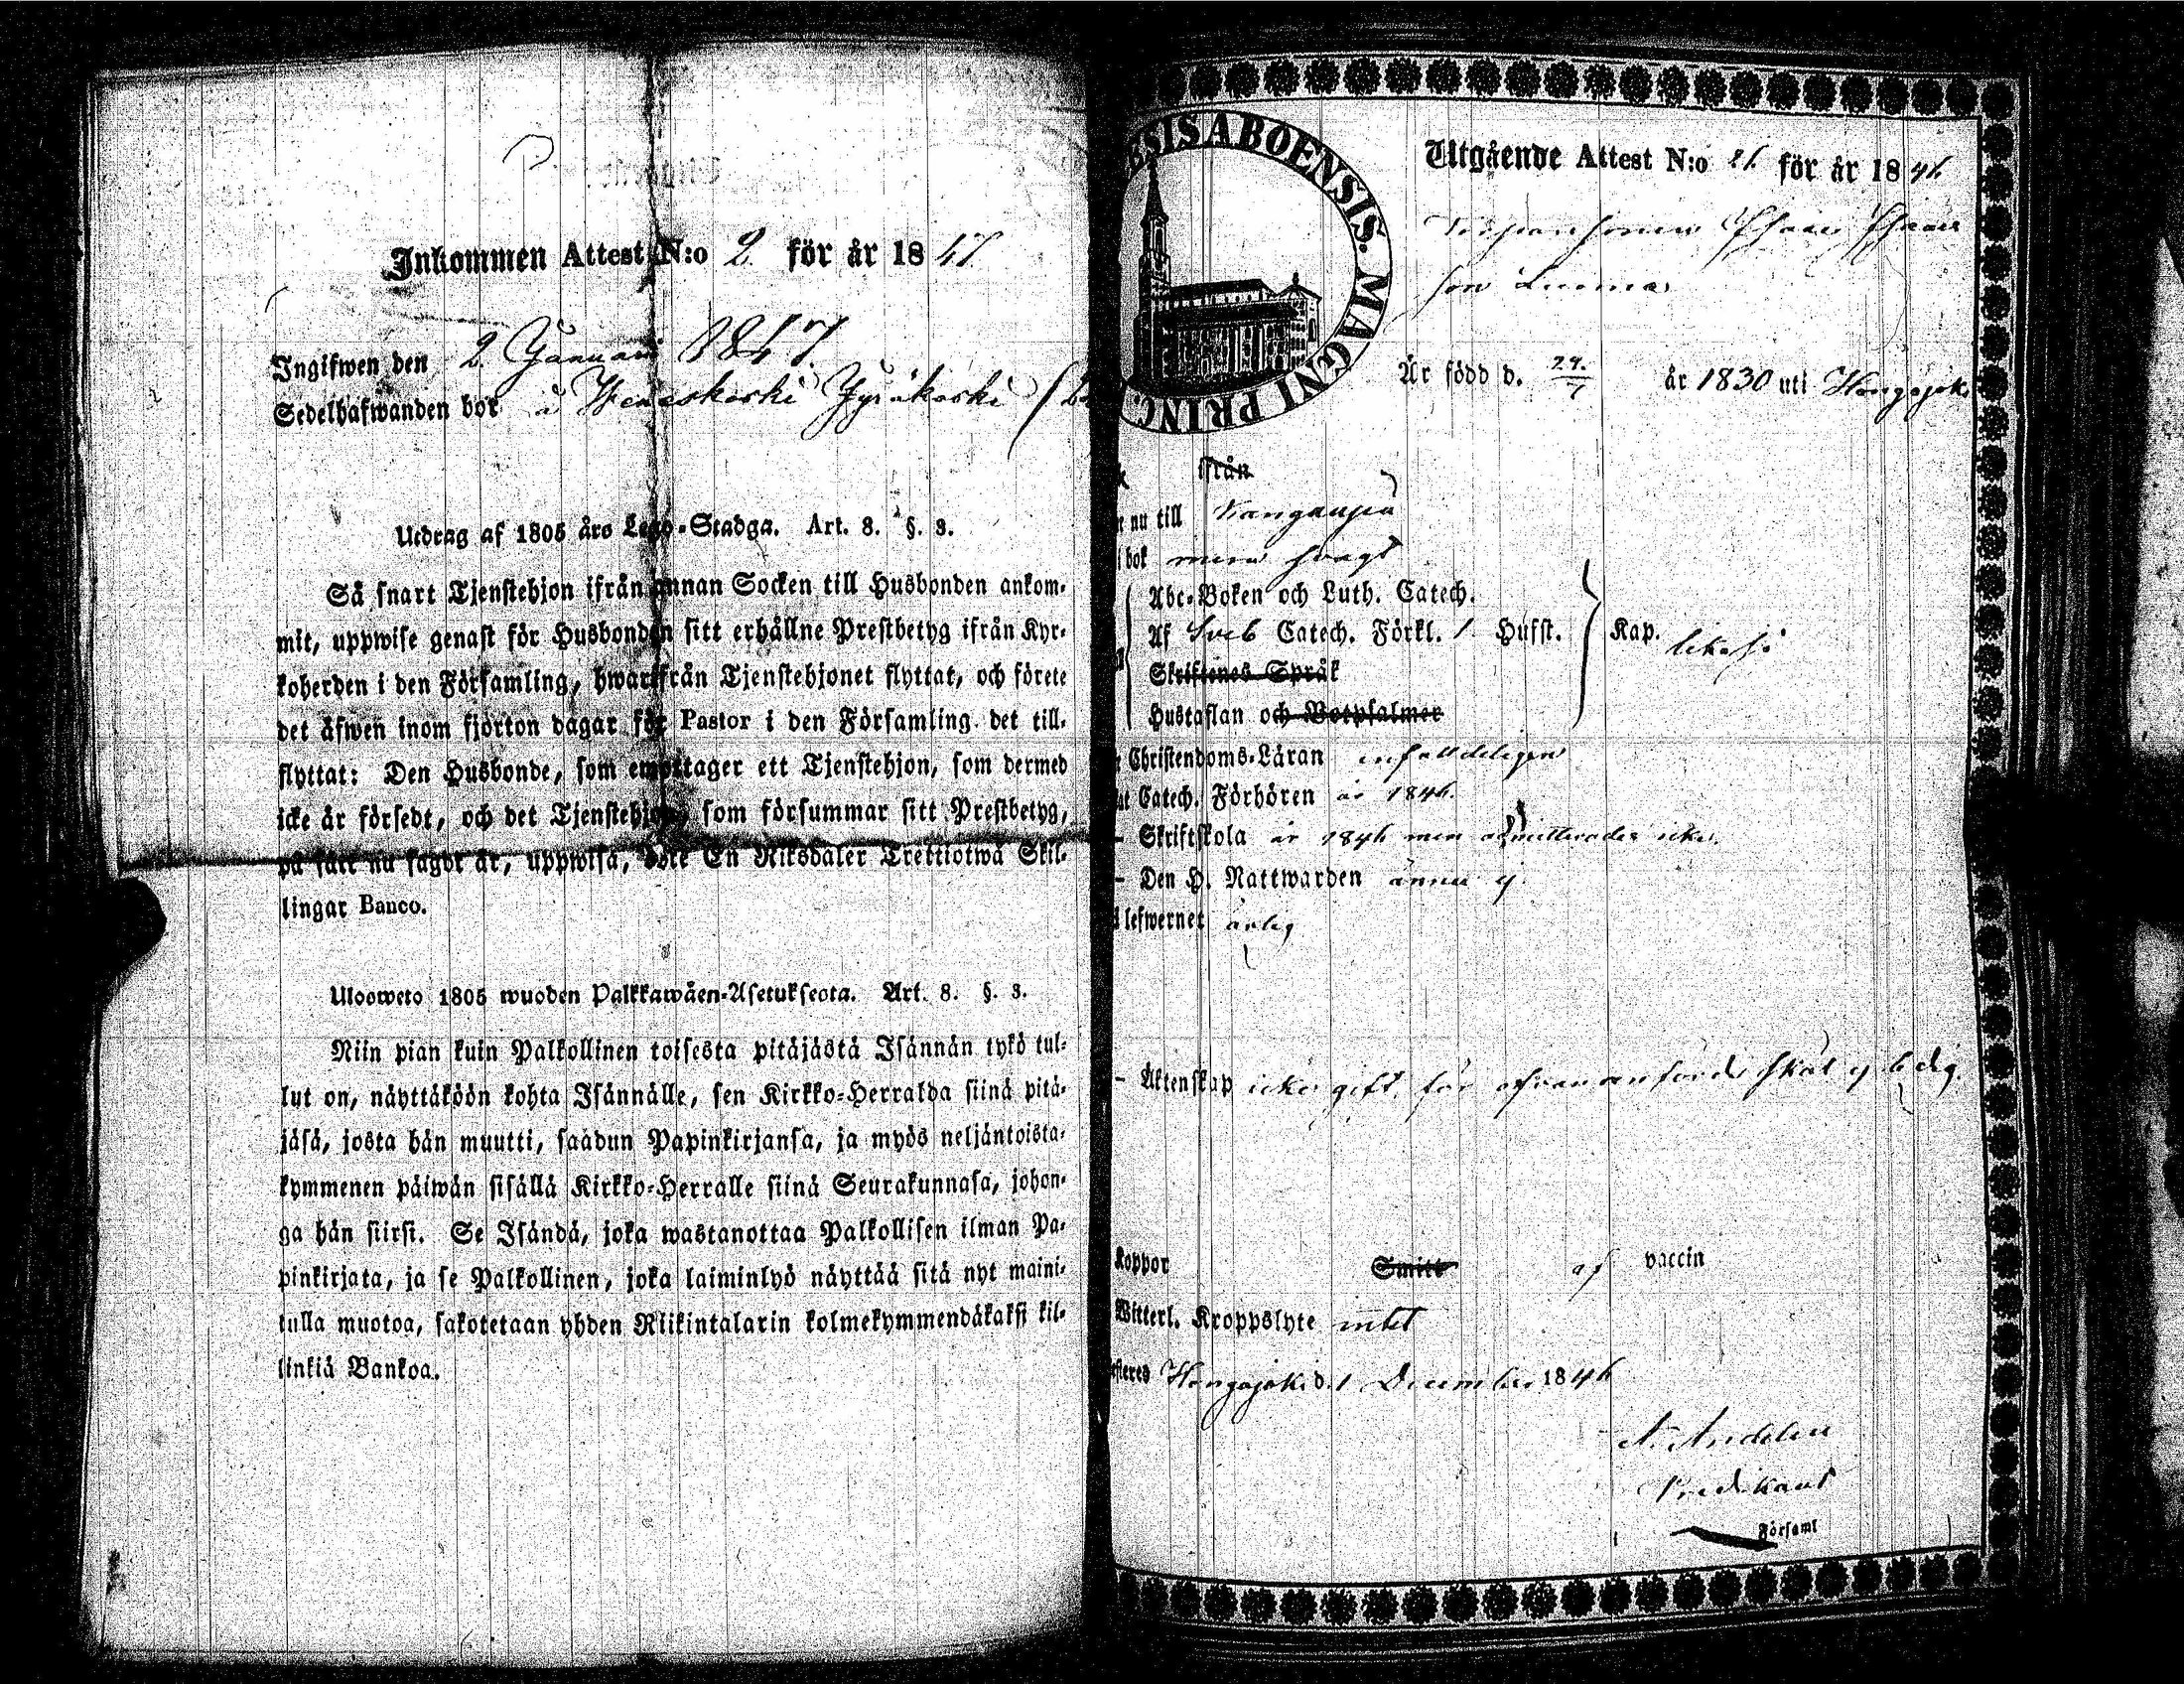 Inkommen Attest N:o 2. för år 1847
Ingifwen den 2. Januari 1847.
Sedelhafwanden bor å Jyräkoski
Utdrag af 1805 års Lego-Stadga. Art. 8. §. 3.
Så snart Tjenstehjon ifrån annan Socken till Husbonden ankom-
mit, uppwise genast för Husbonden sitt erhållne Prestbetyg ifrån Kyr-
koherden i den Församling, hwarifrån Tjenstehjonet flyttat, och förete
det äfwen inom fjorton dagar för Pastor i den Församling det till-
flyttat: Den Husbonde, som emottager ett Tjenstehjon, som dermed
icke är försedt, och det Tjenstehjon, som försummar sitt Prestbetyg,
på sätt nu sagdt är, uppwisa, böte En Riksdaler Trettiotwå Skil-
lingar Banco.
Ulosweto 1805 wuoden Palkkawäen-Asetuksesta. Art. 8. §. 3.
Niin pian kuin Palkollinen toisesta pitäjästä Isännän tykö tul-
lut on, näyttäköön kohta Isännälle, sen Kirkko-Herralda siinä pitä-
jäsä, josta hän muutti, saadun Papinkirjansa, ja myös neljäntoista-
kymmenen päiwän sisällä Kirkko-Herralle siinä Seurakunnasa, johon-
ga hän siirsi. Se Isändä, joka wastanottaa Palkollisen ilman Pa-
pinkirjata, ja se Palkollinen, joka laiminlyö näyttää sitä nyt maini-
tulla muotoa, sakotetaan yhden Rlikintalarin kolmekymmendäkaksi kil-
linkiä Bankoa.
SIS ABOENSIS. MAGNI PRINC.
Utgående Attest N:o för år 1846
son
Är född d. 29/7 år 1830 uti Hongojoki
ifrån
nu till Kangaspää
bok mera svagt
Abc-Boken och Luth. Catech.
Af Sveb Catech. Förkl. 1 Hufst. Kap. likaså
Skriftenes Språk
Hustaflan och Botpsalmer
Christendoms-Läran enfalldeligen
Catech. Förhören år 1846.
- Skriftskola år 1846 men admitterades icke.
- Den H. Nattwarden ännu ej.
lefwernet ärlig
- Äktenskap icke gift, för ofvananförde skäl ej ledig.
koppor Smitt af vaccin
Witterl. Kroppslyte intet
Hongojoki d. 1 December 1846
Predikant
Församl